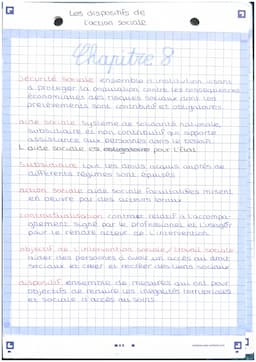 Les dispositifs de
l'action sociale
Chapitre 8
Sécurité sociale ensemble d'institution visant
à protéger la population contre les conséquences
économiques des risques sociaux dont les
prélèvements sont contributif et obligatoires.
aide sociale système de solidarité nationale,
subsidiaire et non contributif qui apporte
assistance aux personnes dans le besoin
L'aide sociale est obligatoire pour l'État
Subsidiaire tous les droits acquis auprès de
différents régimes sont épuisés
action sociale aide sociale facultatives misent
en oeuvre par des acteurs locaux
contractualisation contrat relatif à l'accompa-
gnement signé par le professionnel et l'usager
pour le rendre acteur de l'intervention.
objectif de l'intervention sociale/travail sociale
aider des personnes à avoir un accès au droit
sociaux et créer et recréer des liens sociaux
dispositif ensemble de mesures qui ont pour
objectifs de réduire les inégalités territoriales
et sociale d'accès au soins